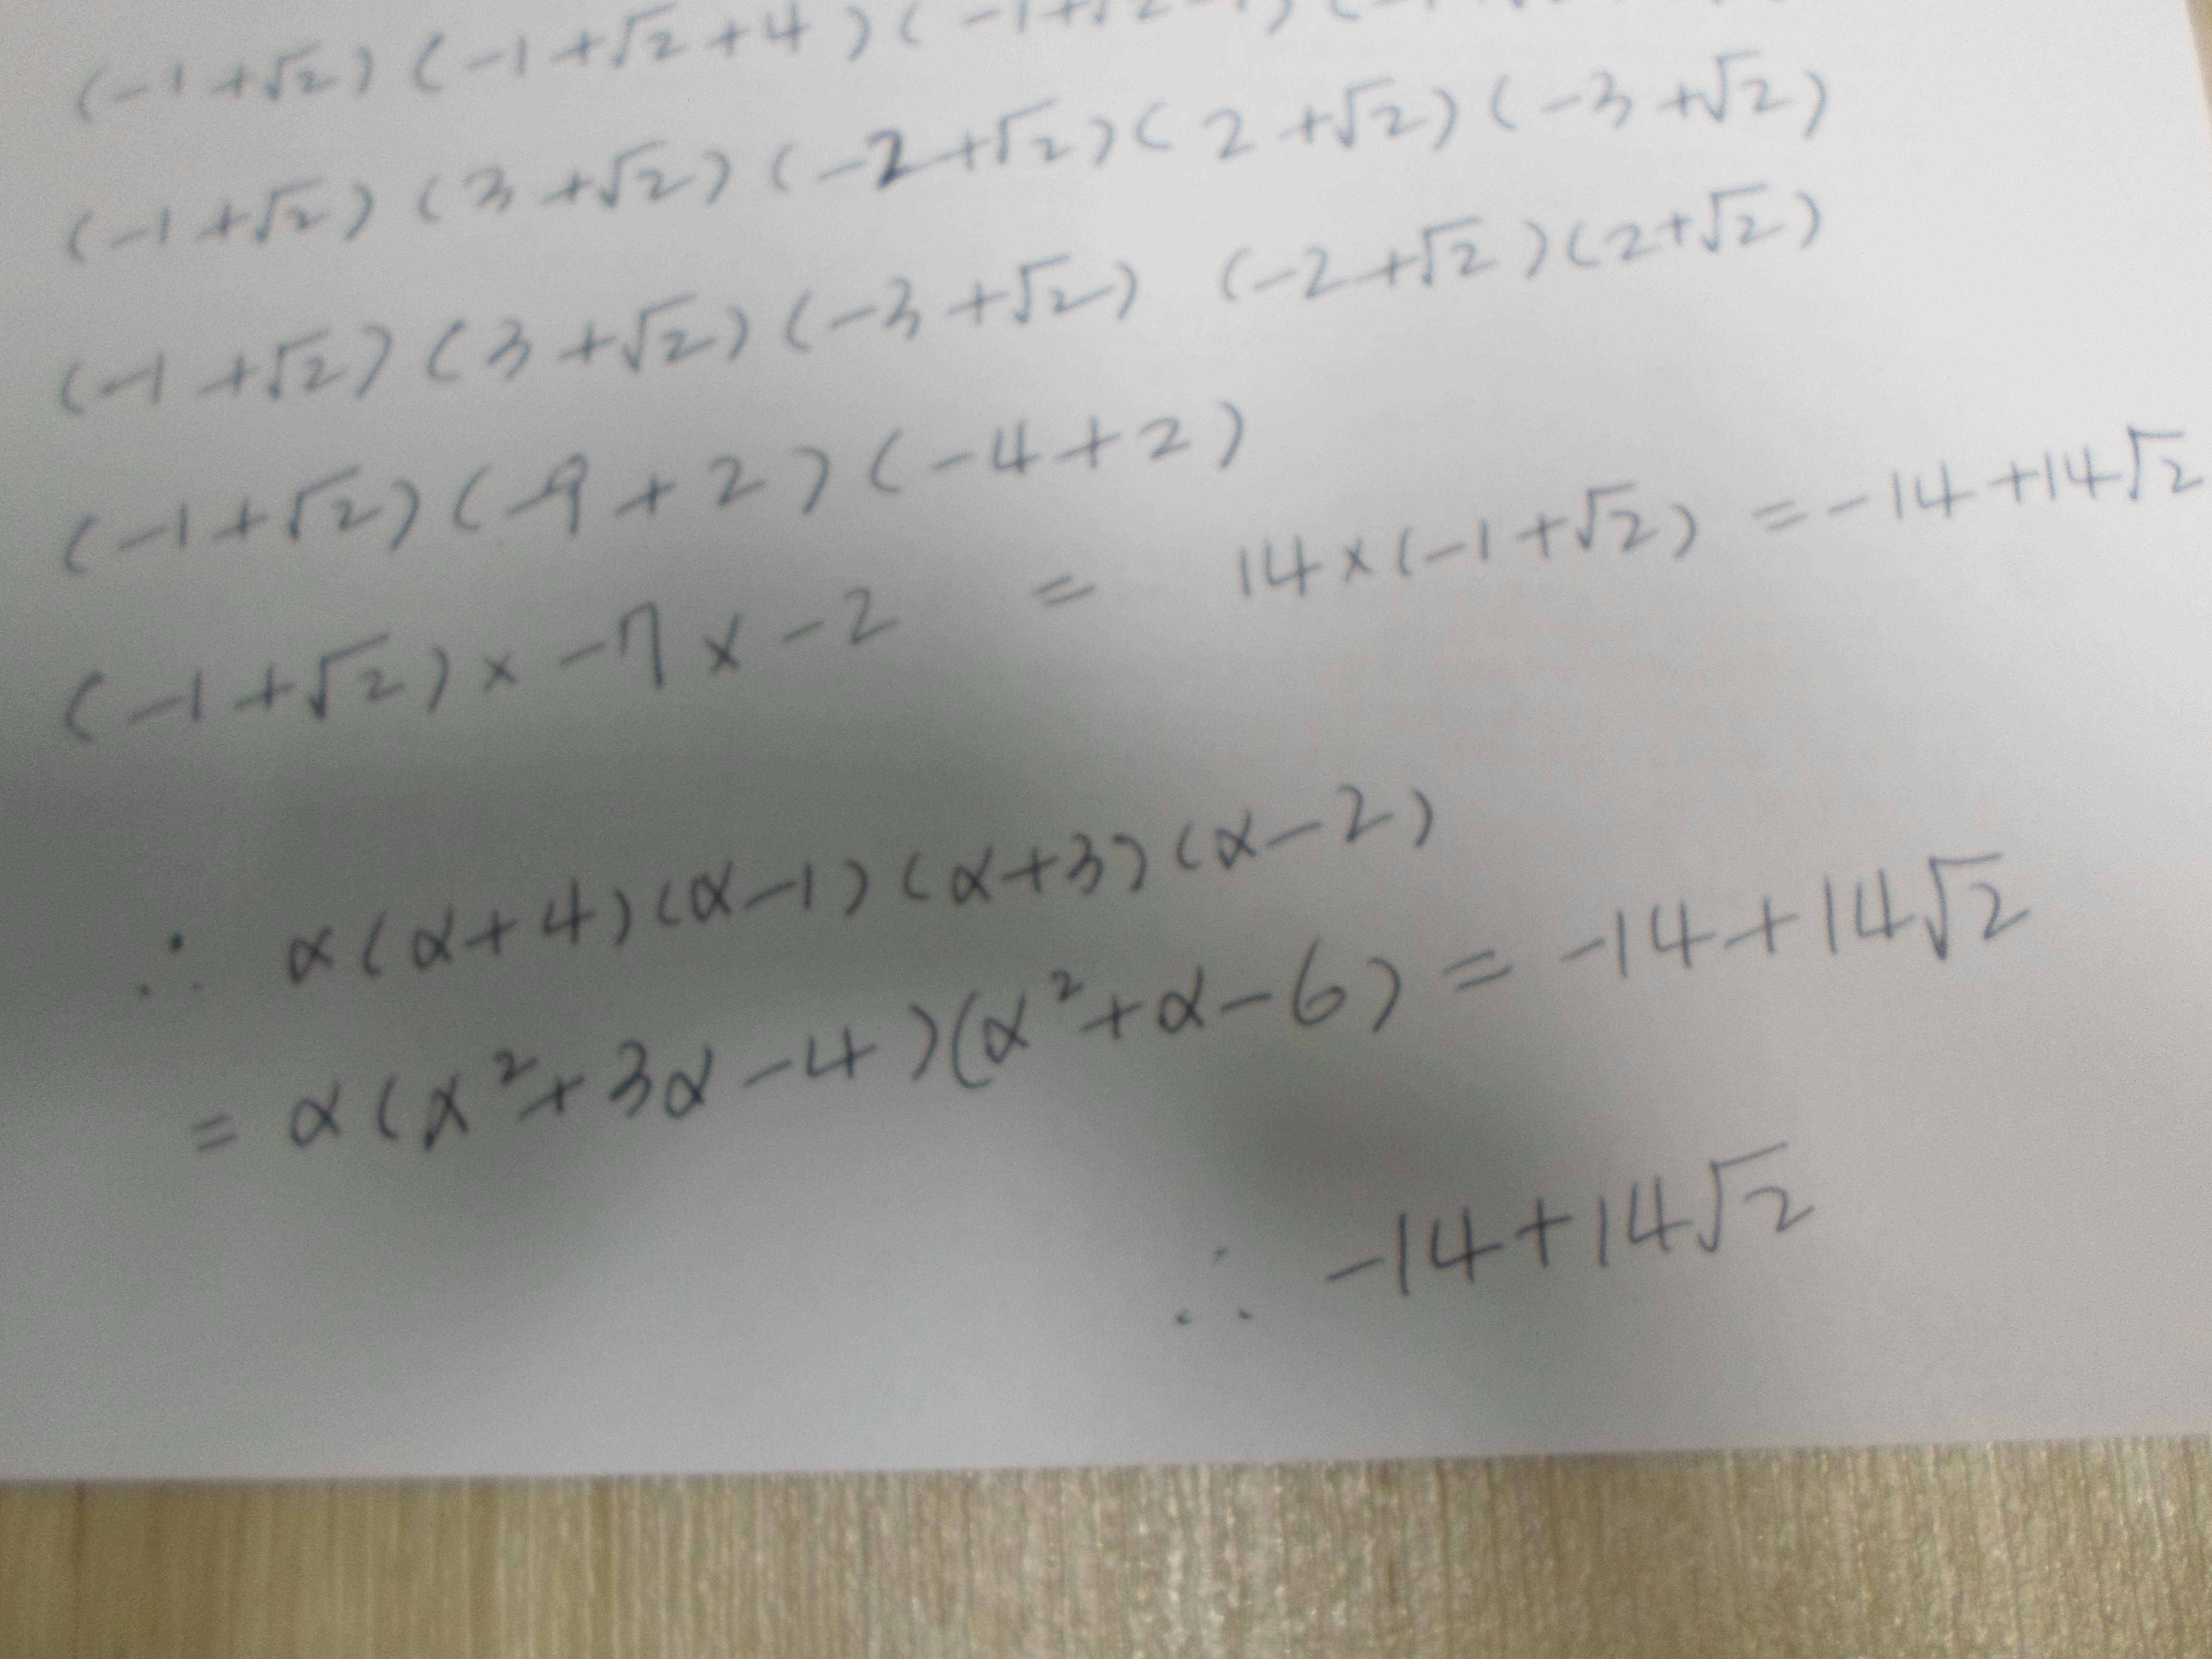 (-1+√2)(-1+√2+4)(-1+√2
(-1+√2)(3+√2)(-2+√2)(2+√2)(-3+√2)
(-1+√2)(3+√2)(-3+√2) (-2+√2)(2+√2)
(-1+√2)(-9+2)(-4+2)
(-1+√2)×-7×-2 = 14×(-1+√2) =-14+14√2
∴ α(α+4)(α-1)(α+3)(α-2)
= α(α²+3α-4)(α²+α-6) = -14+14√2
∴ -14+14√2